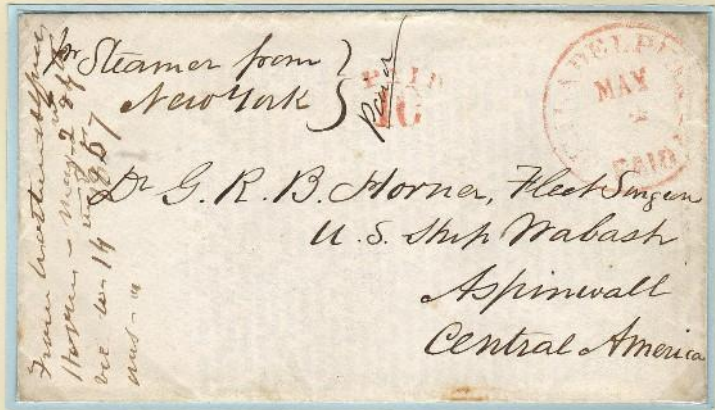 pr Steamer from
New York
Paid
PAID
10
PHILADELPHIA
MAY
2
PAID
Dr G. R. B. Horner, Fleet Surgeon
U. S. Ship Wabash
Aspinwall
Central America
From
May 2
rec 14